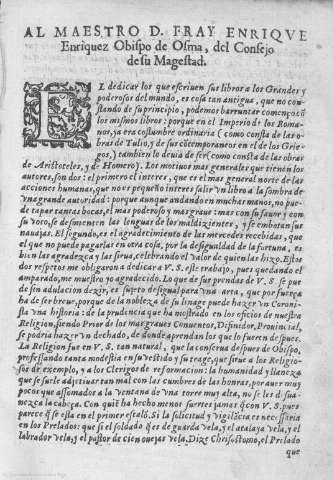 AL MAESTRO D. FRAY ENRIQVE
Enriquez Obispo de Osma, del Consejo
de su Magestad.
EL dedicar los que escriuen sus libros a los Grandes y
poderosos del mundo, es cosa tan antigua, que no con
stando de su principio, podemos barruntar començo cõ
los mismos libros: porque en el Imperio de los Roma-
nos, ya era costumbre ordinaria (como consta de las o-
bras de Tulio, y de sus cõtemporaneos en el de los Grie-
gos,) tambien lo deuia de ser (como consta de las obras
de Aristoteles, y de Homero). Los motiuos mas generales que tienen los
autores, son dos: el primero el interes, que es el mas general norte de las
acciones humanas, que no es pequeño interes salir vn libro a la sombra de
vna grande autoridad: porque aunque andando en muchas manos, no pue-
de tapar tantas bocas, el mas poderoso y mas graue: mas con su fauor y con
su voto, se desmienten las lenguas de los maldizientes, y se embotan sus
nauajas. El segundo, es el agradecimiento de las mercedes recebidas, que
el que no puede pagarlas en otra cosa, por la desigualdad de la fortuna, es
bien las agradezca y las sirua, celebrando el valor de quien las hizo. Estos
dos respetos me obligaron a dedicar a V. S. este trabajo, pues quedando el
amparado, me muestro yo agradecido. Lo que de sus prendas de V. S. se pue
de sin adulacion dezir, es sujeto desigual para vna carta, que por fuerça
ha de ser breue, porque de la nobleza de su linage puede hazer vn Coroni-
sta vna historia: de la prudencia que ha mostrado en los oficios de nuestra
Religion, siendo Prior de los mas graues Conuentos, Difinidor, Prouincial,
se podria hazer vn dechado, de donde aprendan los que lo fueren despues.
La Religion fue en V. S. tan natural, que la conserua despues de Obispo,
professando tanta modestia en su vestido y su trage, que sirue a los Religio-
sos de exemplo, y a los Clerigos de reformacion: la humanidad y llaneza
que se suele adjetiuar tan mal con las cumbres de las honras, por auer muy
pocos que assomados a la ventana de vna torre muy alta, no se les desua-
nezca la cabeça. Con quiẽ ha hecho menos suertes jamas q̃ con V. S. pues
parece q̃ se està en el primer estado. Si la solicitud y vigilãcia es necessaria
en los Prelados: que si el soldado q̃ es de guarda vela, y el atalaya vela, y el
labrador vela, y el pastor de cien ouejas vela, Dize Chrisostomo, el Prelado
que